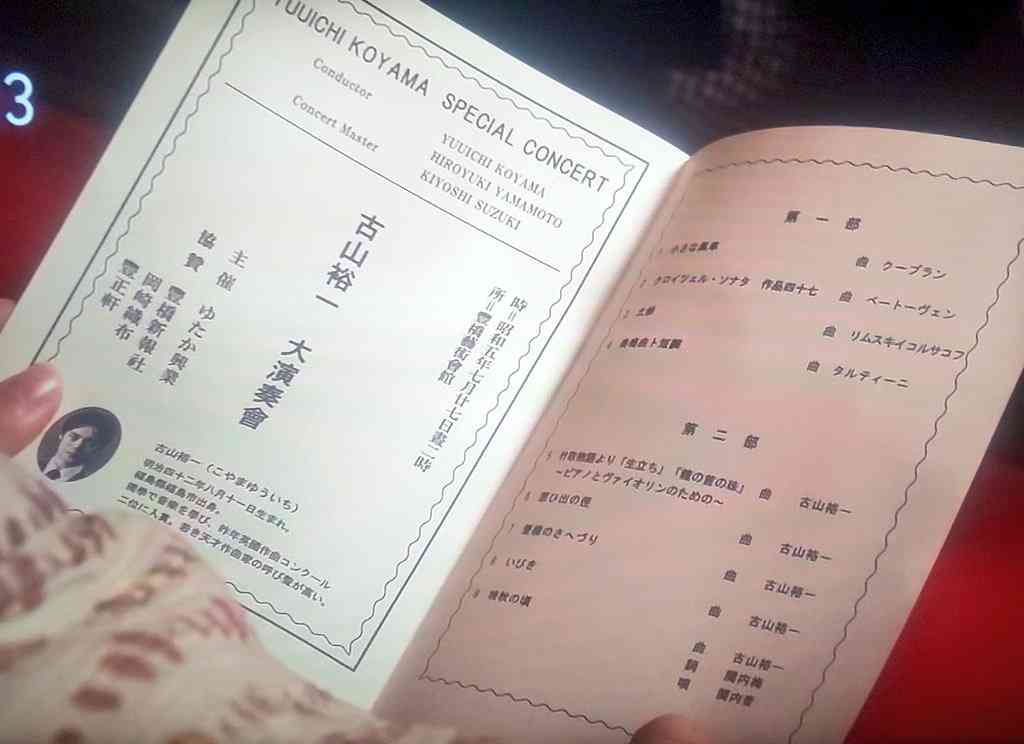 3
YUUICHI KOYAMA SPECIAL CONCERT
Conductor
YUUICHI KOYAMA
HIROYUKI YAMAMOTO
Concert Master
KIYOSHI SUZUKI
時=昭和五年七月廿七日晝二時
所=豐橋藝術會館
古山裕一 大演奏會
主催 ゆたか興業
協贊 豐橋新報社
岡崎織布
豐正軒
古山裕一(こやまゆういち)
明治四十二年八月十一日生まれ。
福島縣福島市出身。
獨學で音樂を學び、昨年英國作曲コンクール
二位に入賞。若き天才作曲家の呼び聲が高い。
第一部
1 小さな風車 曲 クープラン
2 クロイツェル・ソナタ 作品四十七 曲 ベートーヴェン
3 曲 リムスキイコルサコフ
4 曲ト短調 曲 タルティーニ
第二部
5 竹取物語より「生立ち」「龍の首の珠」 曲 古山裕一
~ピアノとヴァイオリンのための~
6 思ひ出の径 曲 古山裕一
7 のさへづり 曲 古山裕一
8 いびき 曲 古山裕一
9 晩秋の頃 曲 古山裕一
詞 関内梅
唄 関内音